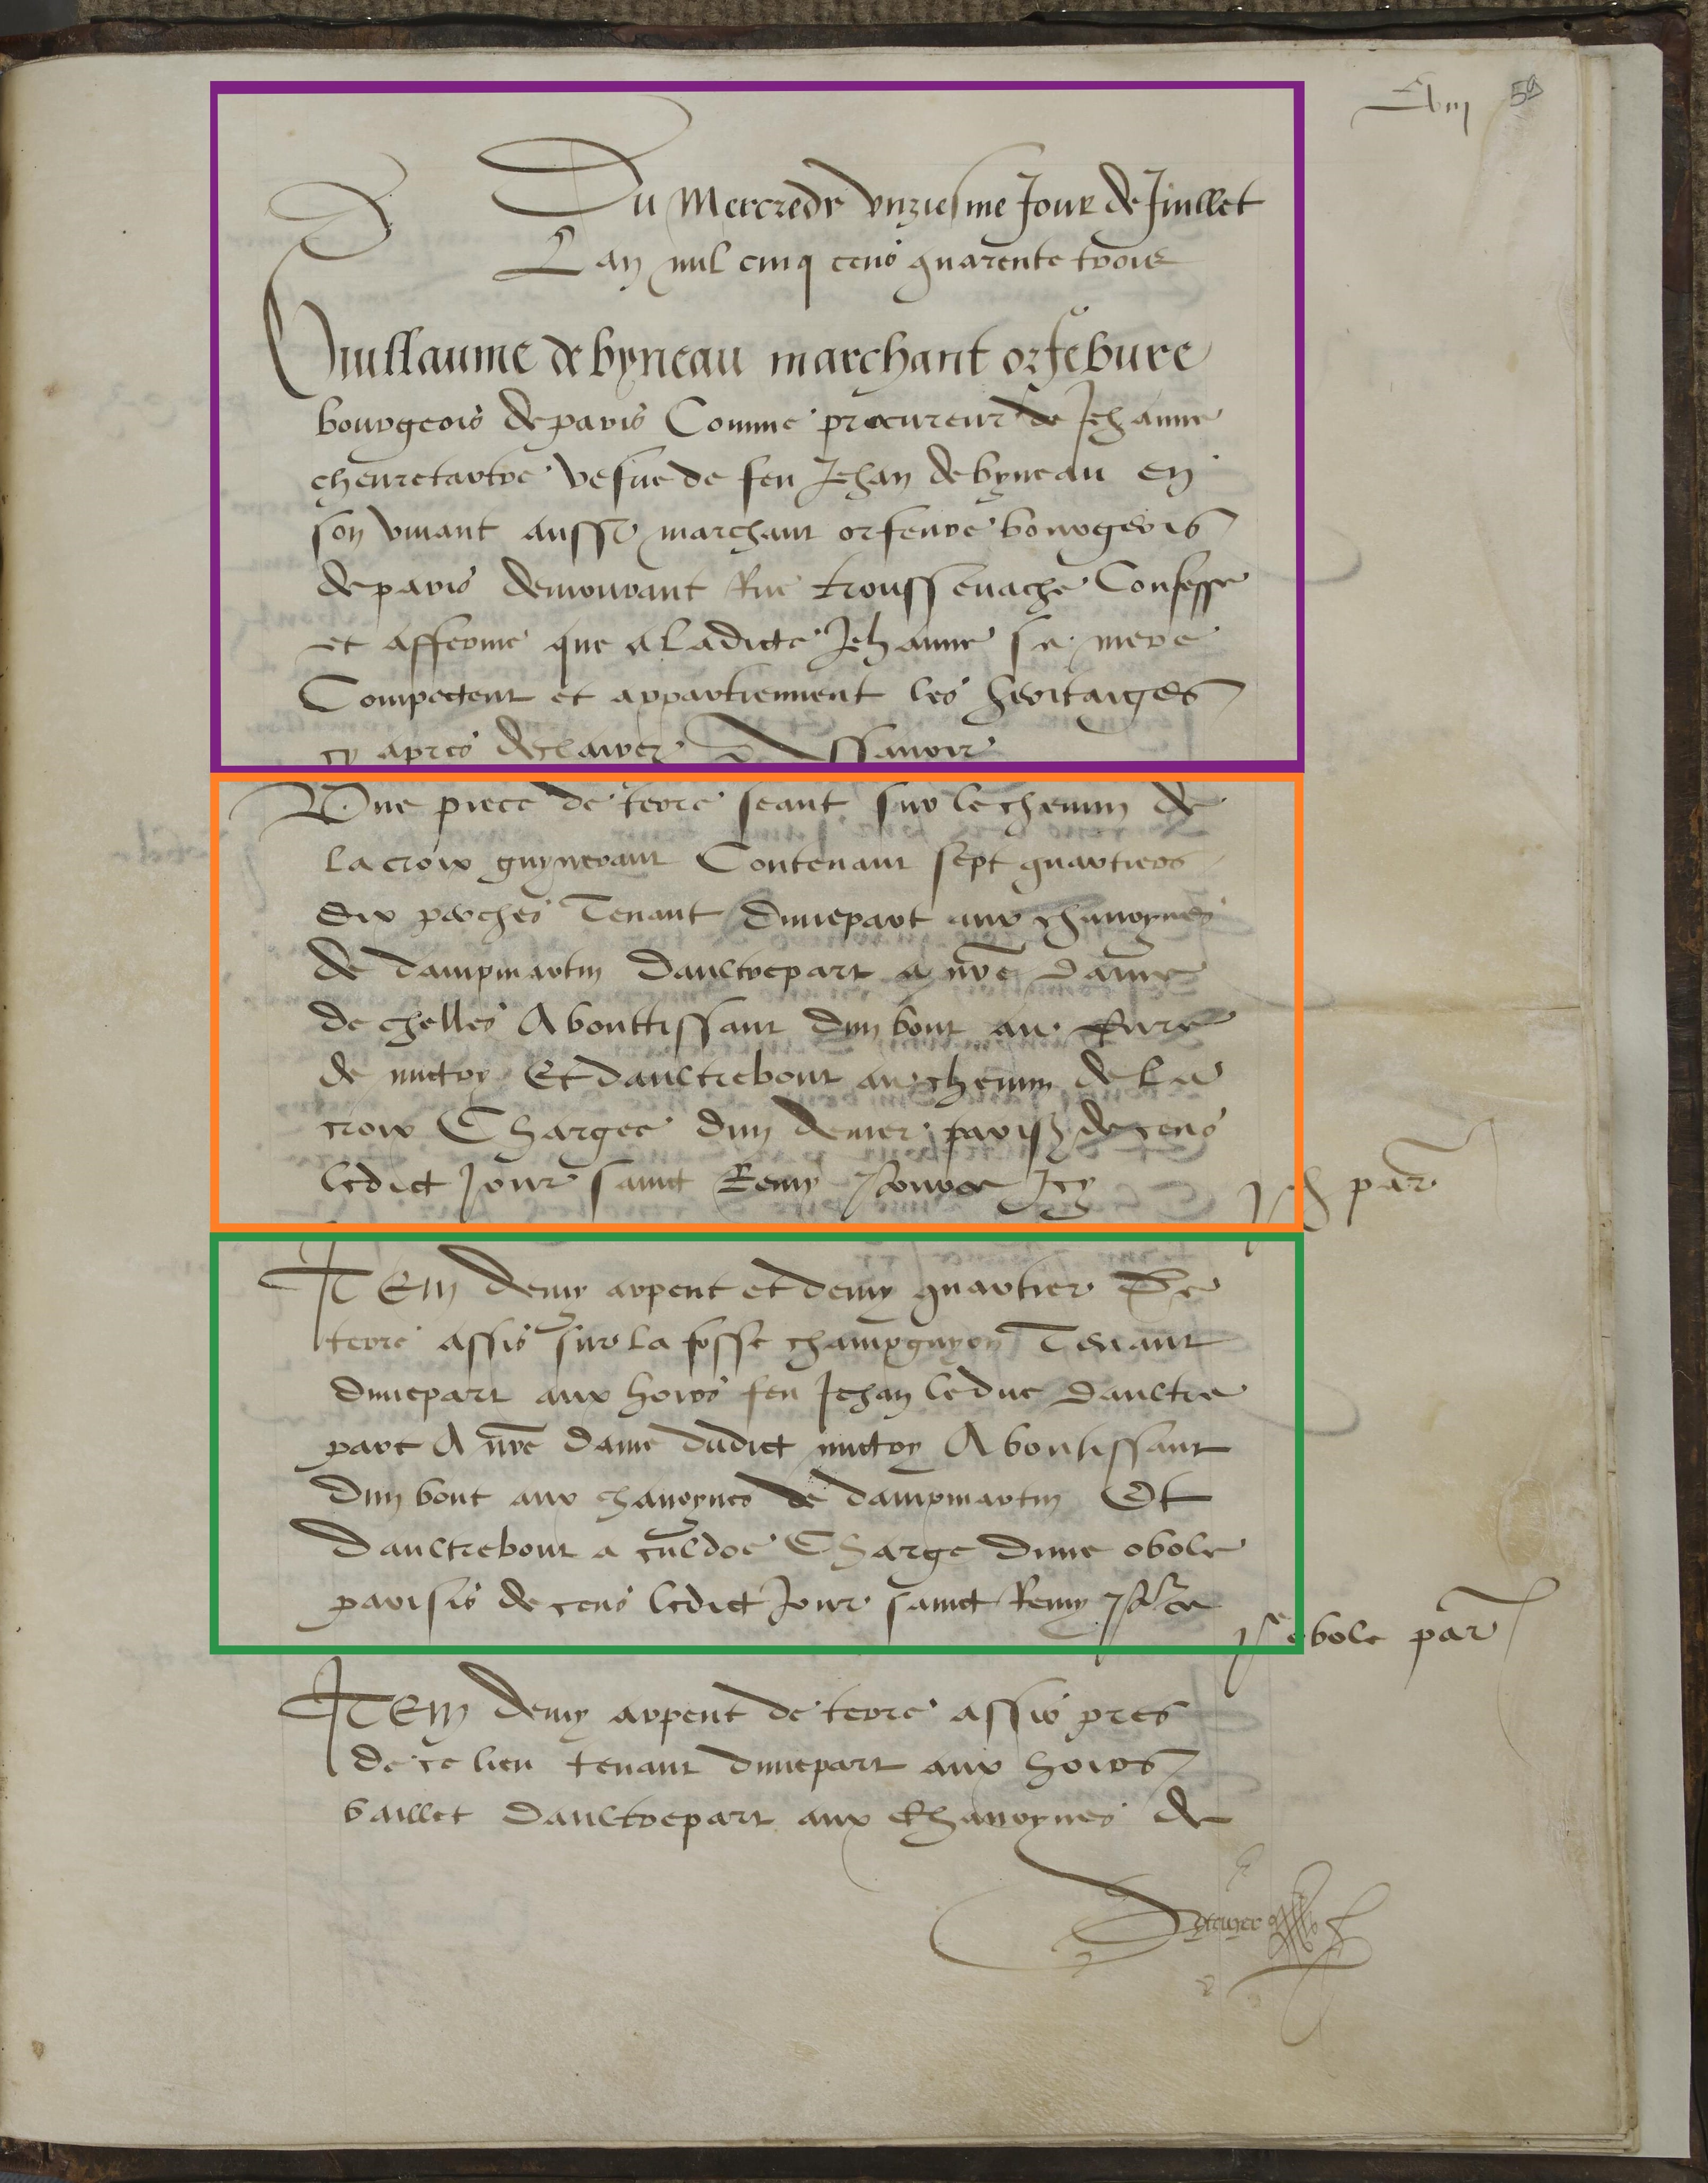 Lviii 59
Du Mercredy unziesme Jour de Juillet
Lan mil cinq cens quarente trois
Guillaume de byneau marchant orfebvre
bourgeois de paris Comme procureur de Jehanne
chevretartre vefue de feu Jehan de byneau en
son vivant aussi marchant orfeuvre bourgeois
de paris demourant Rue troussevache Confesse
et afferme que a ladicte Jehanne sa mere
Competent et appartiennent les heritaiges
cy apres declairez Assavoir
Une piece de terre seant sur le chemin de
la croix guynerant Contenant sept quartiers
dix perches Tenant dunepart aux chanoynes
de dampmartin daultrepart a nre dame
de chelles Abouttissant dun bout au Curé
de mictry Et daultrebout au chemin de la
croix Chargee dun denier parisis de cens
ledict Jour sainct Remy Icy
j d par
ITEM demy arpent et demy quartier de
terre assis sur la fosse champguyon Tenant
dunepart aux hoirs feu Jehan leduc daultre
part A nre dame dudict mictry Aboutissant
dun bout aux chanoynes de dampmartin Et
daultrebout a culdoe Charge dune obole
parisis de cens ledict Jour sainct Remy
obole par
ITEM demy arpent de terre assis pres
de ce lieu tenant dunepart aux hoirs
baillet daultrepart aux Chanoynes de